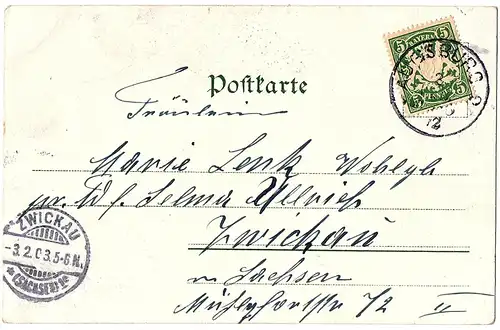 Postkarte
5 BAYERN 5
5 PFENNIG 5
AUGSBURG 2
12
Fräulein
Marie Lenk Wohlgb
pr. Adr. Selma Ullrich
Zwickau
in Sachsen
72 II
ZWICKAU
-3.2.03.5-6N.
(SACHSEN)